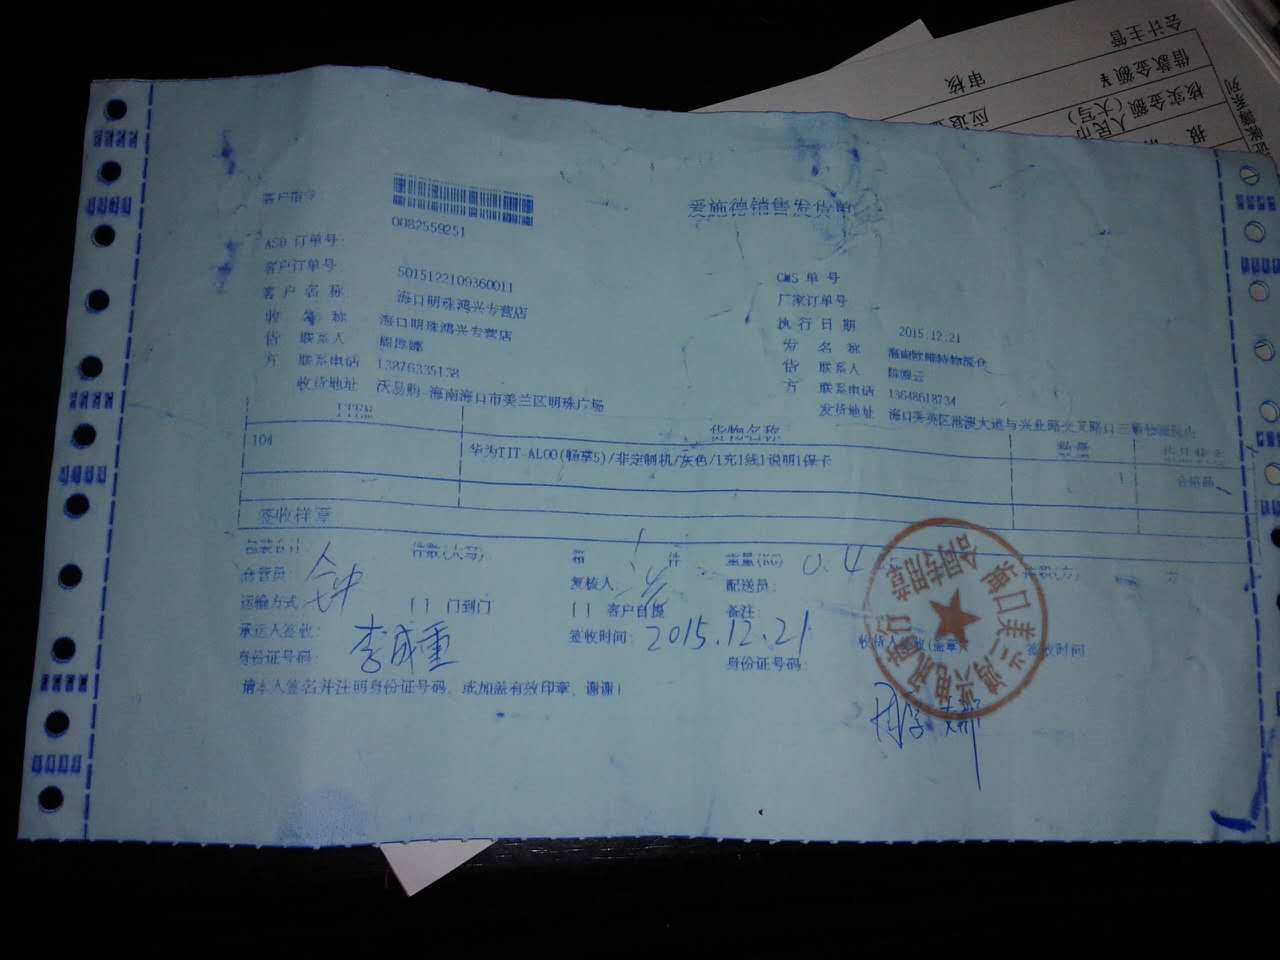 爱施德销售发货单
客户指令
0082559251
ASD 订单号
客户订单号 5015122109360011
客户名称 海口明珠鸿兴专营店
收 名称 海口明珠鸿兴专营店
货 联系人
方 联系电话 13876335138
收货地址 沃易购 海南海口市美兰区明珠广场
CMS 单号
厂家订单号
执行日期 2015.12.21
发 名称 海南欧唯特物流仓
货 联系人
方 联系电话 13648618734
发货地址 海口美英区港澳大道与兴业路交叉路口
ITEM 货物名称 数量
104 华为TIT-AL00(畅享5)/非定制机/灰色/1充1线1说明1保卡 1 合格品
签收样章
包装合计 件数(大写) 箱 1 件 重量(KG) 0.4 方
仓管员: 复核人: 配送员:
运输方式 [ ] 门到门 [ ] 客户自提 备注:
承运人签收: 李成重 签收时间: 2015.12.21 收货人签收(盖章) 签收时间
身份证号码: 身份证号码:
请本人签名并注明身份证号码, 或加盖有效印章, 谢谢!
合同专用章
会计主管
审核
借款金额 ¥
核实金额(大写)
人民币